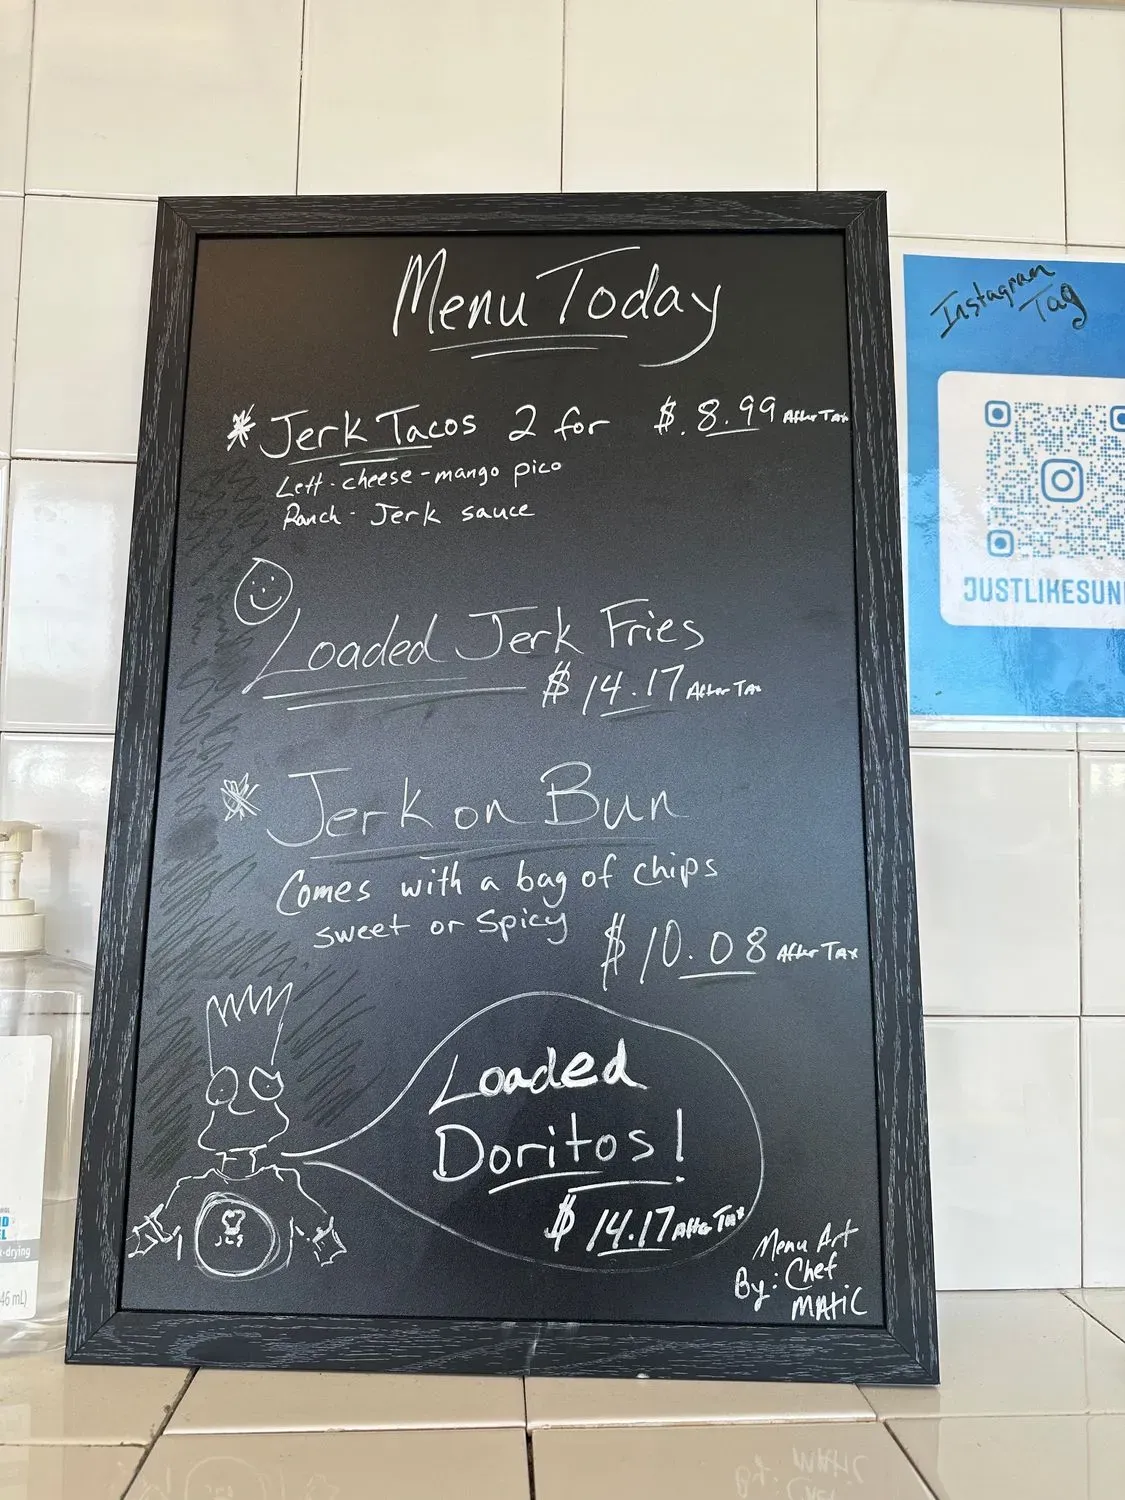 Menu Today
* Jerk Tacos 2 for $.8.99 After Tax
Lett-cheese-mango pico
Ranch- Jerk sauce
Loaded Jerk Fries
$14.17 After Tax
* Jerk on Bun
Comes with a bag of chips
sweet or spicy
$10.08 After Tax
Loaded
Doritos!
$14.17 After Tax
JLS
Menu Art
By: Chef
MATiC
Instagram
Tag
JUSTLIKESUN
-drying
46 mL)